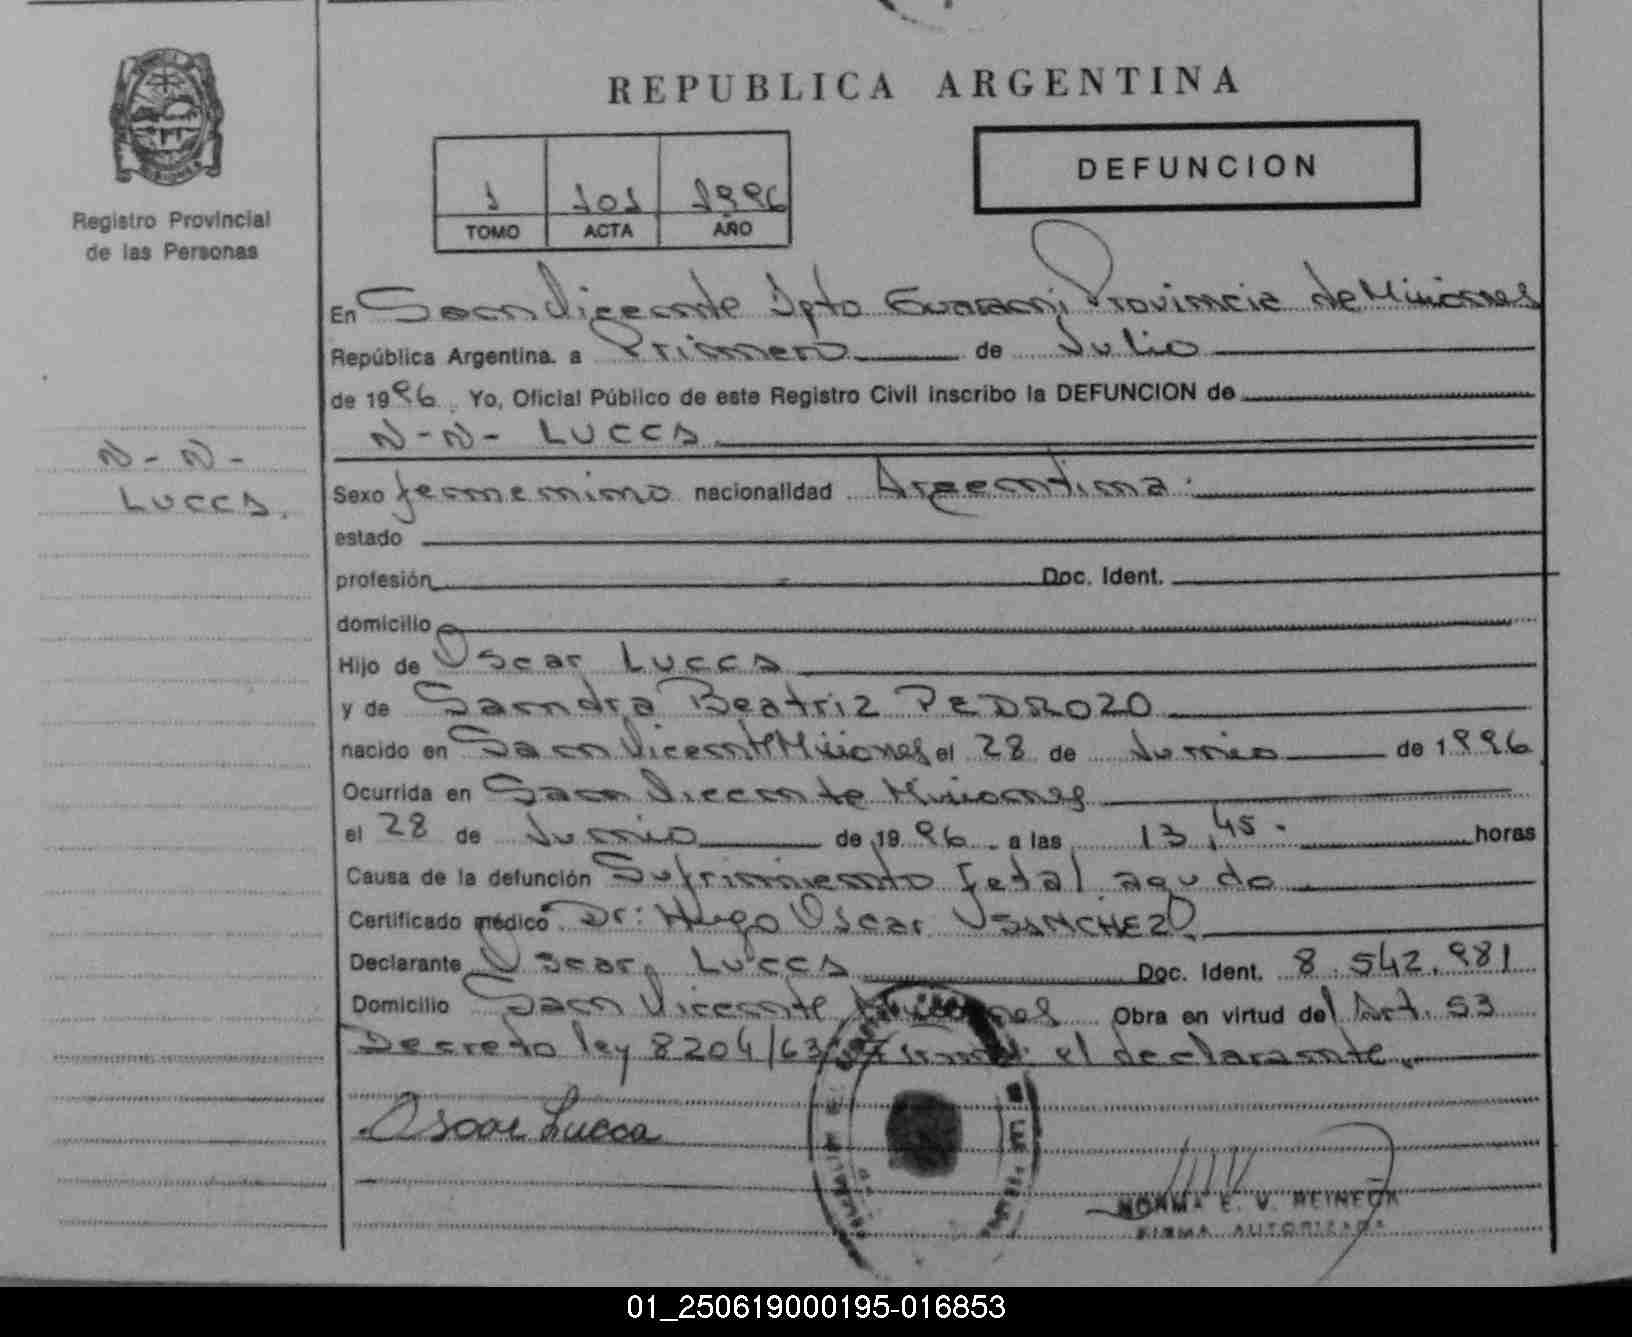 REPUBLICA ARGENTINA
DEFUNCION
1 101 1996
TOMO ACTA AÑO
Registro Provincial
de las Personas
En San Vicente Dpto Guarani Provincia de Misiones
República Argentina. a Primero de Julio
de 1996. Yo, Oficial Público de este Registro Civil inscribo la DEFUNCION de
N-N- LUCCA
N-N-
LUCCA.
Sexo femenino nacionalidad Argentina.
estado
profesión Doc. Ident.
domicilio
Hijo de Oscar LUCCA
y de Sandra Beatriz PEDROZO
nacido en San Vicente Misiones el 28 de Junio de 1996
Ocurrida en San Vicente Misiones
el 28 de Junio de 1996 a las 13,45. horas
Causa de la defunción Sufrimiento fetal agudo
Certificado médico Dr: Hugo Oscar SANCHEZ.
Declarante Oscar LUCCA Doc. Ident. 8.542.981
Domicilio San Vicente Misiones Obra en virtud del Art. 53
Decreto ley 8204/63 el declarante.
Oscar Lucca
NORMA E. V. REINECK
FIRMA AUTORIZADA
01_250619000195-016853